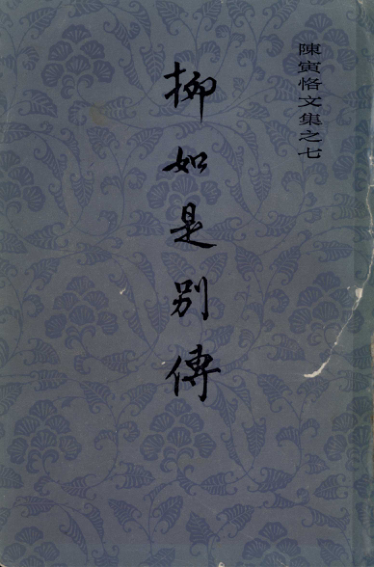 陳寅恪文集之七
柳如是别傳